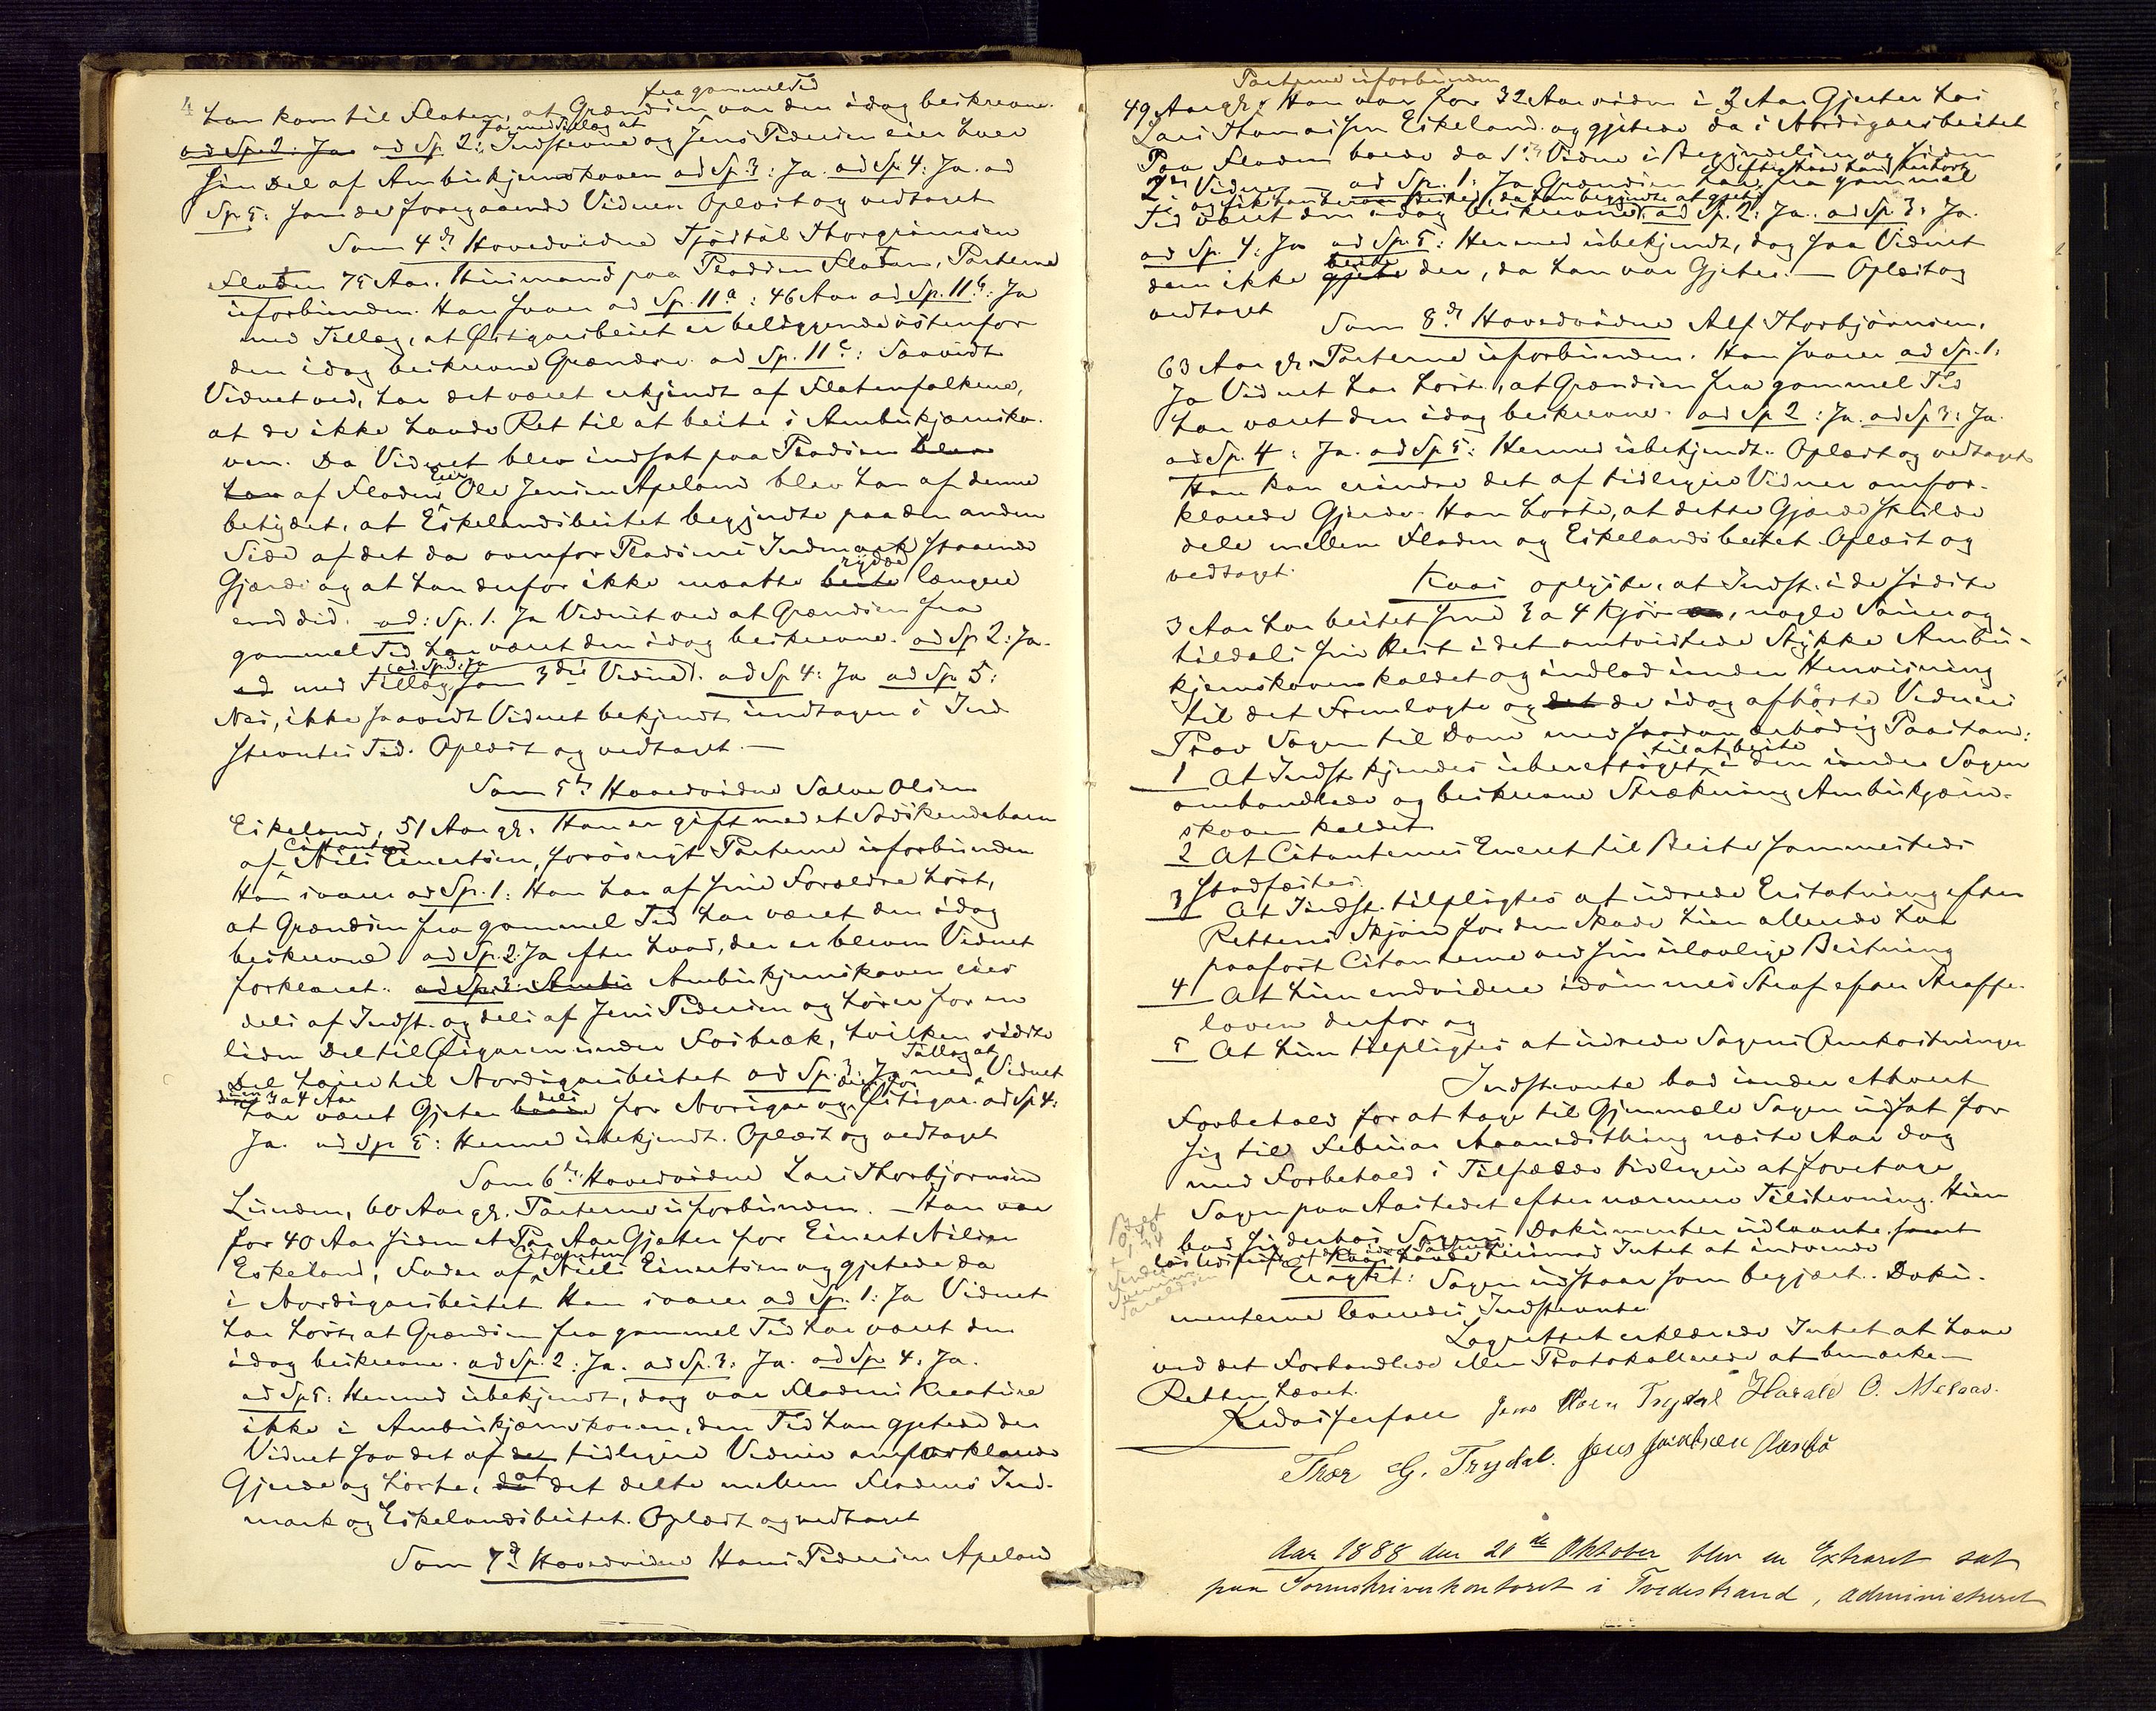 4
fra gammel Tid
han kom til Flaten, at Grændsen var den idag beskrevne.
ad Sp. 2: Ja ad Sp. 2: Ja med Tillæg at Indstevnte og Jens Pedersen eier hver
sin Del af Ambukjernskoven ad Sp. 3: Ja. ad Sp. 4: Ja. ad
Sp. 5: som de foregaaende Vidner. Oplæst og vedtaget
Som 4de Hovedvidne Tjodtøl Thorgrimsen
Flaten 75 Aar. Husmand paa Pladsen Flaten, Parterne
uforbunden. Han svarer ad Sp. 11a: 46 Aar ad Sp. 11b: Ja
med Tillæg, at Østigarsbeitet er beliggende østenfor
den idag beskrevne Grændse. ad Sp. 11c: Saavidt
Vidnet ved, har det været erkjendt af Flatenfolkene,
at de ikke havde Ret til at beite i Ambukjærnsko-
ven. Da Vidnet blev indsat paa Pladsen blev
han af Fladens Eier Ole Jensen Apeland blev han af denne
betydet, at Eskelandsbeitet begyndte paa den anden
Side af det da ovenfor Pladsens Indmark staaende
Gjærde og at han derfor ikke maatte beite rydde længere
end did. ad: Sp. 1. Ja Vidnet ved at Grændsen fra
gammel Tid har været den idag beskrevne. ad Sp 2: Ja.
ad med Tillæg som 3die Vidne ad Sp. 3: Ja. ad Sp 4: Ja ad Sp. 5:
Nei, ikke saavidt Vidnet bekjendt undtagen i Ind-
stevntes Tid. Oplæst og vedtaget. —
Som 5te Hovedvidne Salve Olsen
Eikeland, 51 Aar gl. Han er gift med et Sødskendebarn
af Citanten Nils Einertsen, forøvrigt Parterne uforbunden
Han svarer ad Sp. 1: Han har af sine Forældre hørt,
at Grændsen fra gammel Tid har været den idag
beskrevne. ad Sp. 2: Ja efter hvad, der er bleven Vidnet
forklaret. ad Sp. 3: Ambu Ambukjernskoven eies
dels af Indst. og dels af Jens Pedersen og hører for en
liden Del til Østigaren under Fosbræk, hvilken sidste
Del hører til Nordigarsbeitet ad Sp. 3: Ja med Tillæg at Vidnet
i 3 a 4 Aar har været Gjeter baade dels for Norigar og dels for Østigar. ad Sp 4:
Ja. ad Sp 5: Hermed ubekjendt. Oplæst og vedtaget
Som 6te Hovedvidne Lars Thorbjørnsen
Lunden, 60 Aar gl. Parterne uforbunden. — Han var
for 40 Aar siden et Par Aar Gjeter for Einert Nilsen
Eskeland, Fader af Citanten Niels Einertsen og gjetede da
i Nordigarsbeitet Han svarer ad Sp. 1: Ja Vidnet
har hørt, at Grændsen fra gammel Tid har været den
idag beskrevne. ad Sp. 2: Ja. ad Sp. 3: Ja. ad Sp 4: Ja.
ad Sp 5: Hermed ubekjendt, dog var Fladens Kreature
ikke i Ambukjærnskoven, den Tid han gjetede der
Vidnet saa det af de tidligere Vidner omforklarede
Gjerde og hørte, da at det delte mellem Fladens Ind-
mark og Eskelandsbeitet. Oplæst og vedtaget
Som 7de Hovedvidne Hans Pedersen Apeland
Parterne uforbunden
49 Aar gl. Han var for 32 Aar siden i 3 Aar Gjeter hos
Lars Thomassen Eskeland og gjetede da i Nordigarsbeitet
Paa Fladen boede da 1ste Vidne i Begyndelsen og siden
2det Vidne — ad Sp. 1: Ja Grændsen har efter hvad han har hørt fra gammel
Tid været den idag beskrevne, og fik han besked, da han begyndte at gjete. ad Sp. 2: Ja. ad Sp 3: Ja.
ad Sp. 4: Ja ad Sp. 5: Hermed ubekjendt, dog saa Vidnet
dem ikke gjete beite der, da han var Gjeter. — Oplæst og
vedtaget
Som 8de Hovedvidne Alf Thorbjörnsen,
63 Aar gl. Parterne uforbunden. Han svarer ad Sp. 1:
Ja Vidnet har hört, at Grændsen fra gammel Tid
har været den idag beskrevne. ad Sp 2: Ja. ad Sp 3: Ja.
ad Sp. 4: Ja. ad Sp 5: Hermed ubekjendt. Oplæst og vedtaget
Han kan erindre det af tidligere Vidner omfor-
klarede Gjerde. Han hørte, at dette Gjærde skulde
dele mellem Fladen og Eskelandsbeitet Oplæst og
vedtaget.
Kaas oplyste, at Indst. i de sidste
3 Aar har beitet sine 3 a 4 Kjør, nogle Sauer og
tildels sin Hest i det omtvistede Stykke Ambu-
kjernskoven kaldet og indlod under Henvisning
til det Fremlagte og det de idag afhørte Vidners
Prov Sagen til Doms med saadan ærbødig Paastand:
1 At Indst. kjendes uberettiget til at beite i den under Sagen
omhandlede og beskrevne Strækning Ambukjærn-
skoven kaldet
2 At Citanternes Eneret til Beite sammesteds
stadfæstes.
3 At Indst. tilpligtes at udrede Erstatning efter
Rettens Skjøn for den Skade hun allerede har
paaført Citanterne ved sin ulovlige Beitning
4 At hun endvidere idømmes Straf efter Straffe-
loven derfor og
5 At hun tilpligtes at udrede Sagens Omkostninger
Indstevnte bad under ethvert
Forbehold for at tage til Gjenmæle Sagen udsat for
sig til Februar Maanedsthing næste Aar dog
med Forbehold i Tilfælde tidligere at foretage
Sagen paa Aastedet efter nærmere Tilstevning. Hun
bad sig derhos Sagens Dokumenter udlaante samt
Kaas havde herimod Intet at indvende
Eragtet: Sagen udstaar som begjært. Doku-
menterne leveredes Indstevnte
Lagrettet erklærede Intet at have
ved det Forhandlede eller Protokollerede at bemærke —
Retten hævet.
Jens Olsen Trydal Harald O. Melaas.
Thor G. Trydal. Jens Jacobsen
Aar 1888 den 20de Oktober blev en Extraret sat
paa Sorenskriverkontoret i Tvedestrand, administreret